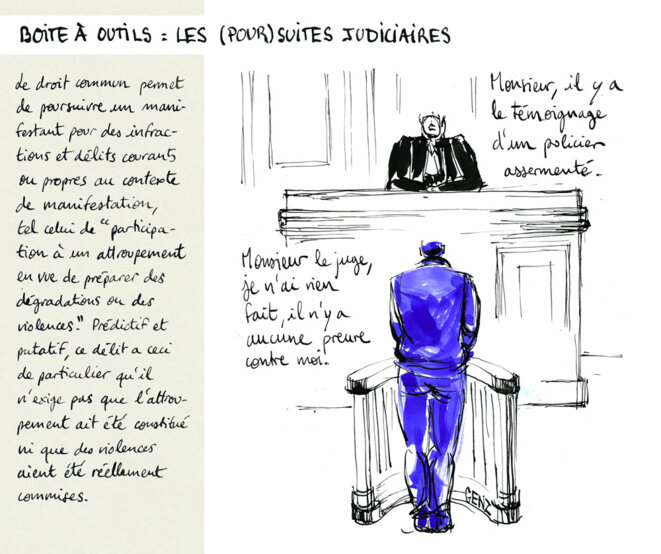 BOITE À OUTILS : LES (POUR)SUITES JUDICIAIRES
Le droit commun permet
de poursuivre un mani-
festant pour des infrac-
tions et délits courants
ou propres au contexte
de manifestation,
tel celui de "participa-
tion à un attroupement
en vue de préparer des
dégradations ou des
violences." Prédictif et
putatif, ce délit a ceci
de particulier qu'il
n'exige pas que l'attrou-
pement ait été constitué
ni que des violences
aient été réellement
commises.
Monsieur, il y a
le témoignage
d'un policier
assermenté.
Monsieur le juge,
je n'ai rien
fait, il n'y a
aucune preuve
contre moi.
GENZ